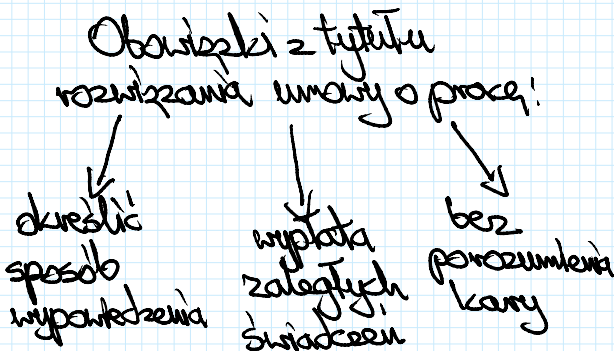 Obowiązki z tytułu
rozwiązania umowy o pracę:
określić
sposób
wypowiedzenia
wypłata
zaległych
świadczeń
bez
porozumienia
kary